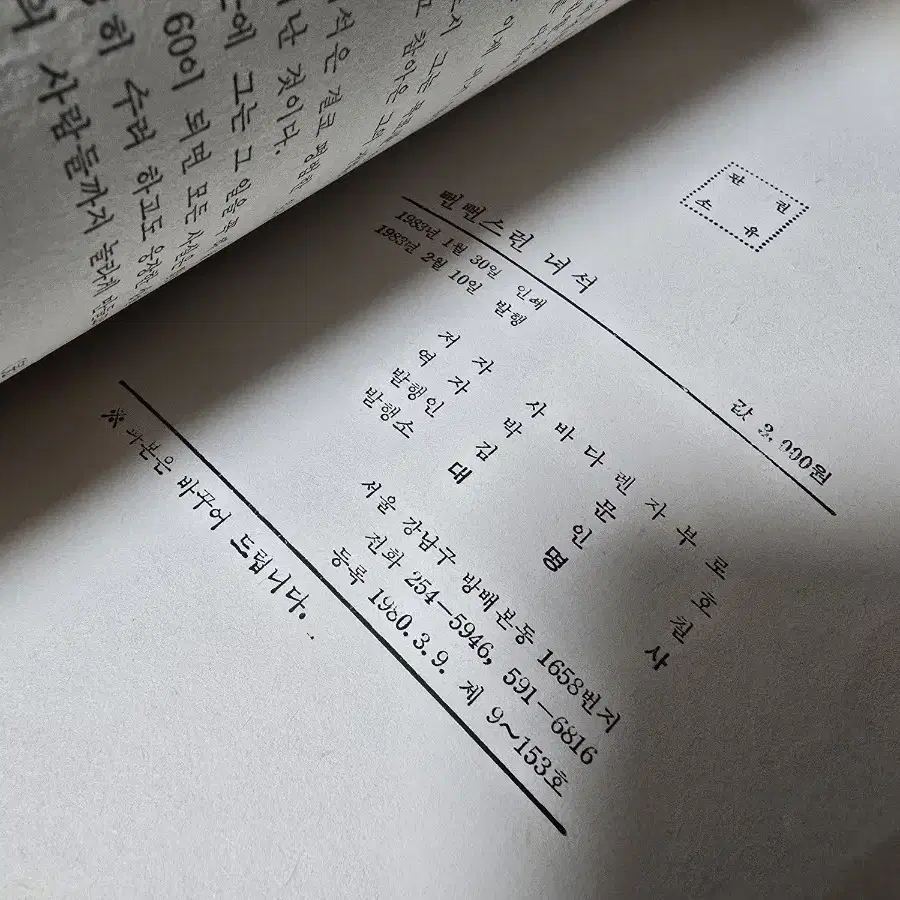 서 그는
고 참아온 그의
석은 결코 평범한
난 것이다.
에 그는 그 일을
60이 되면 모든 사실
히 수려 하고도 웅장한
의 사람들까지 놀라게
판 권
소 유
뻔뻔스런 녀석
1983년 1월 30일 인쇄
1983년 2월 10일 발행
값
저 자 사 바 다 렌 자 부 로
역 자 박 문 호
발행인 김 인 칠
발행소 대 명 사
서울 강남구 방배본동 1658번지
전화 254—5946, 591—6816
등록 1980.3.9. 제 9~153호
※ 파본은 바꾸어 드립니다.